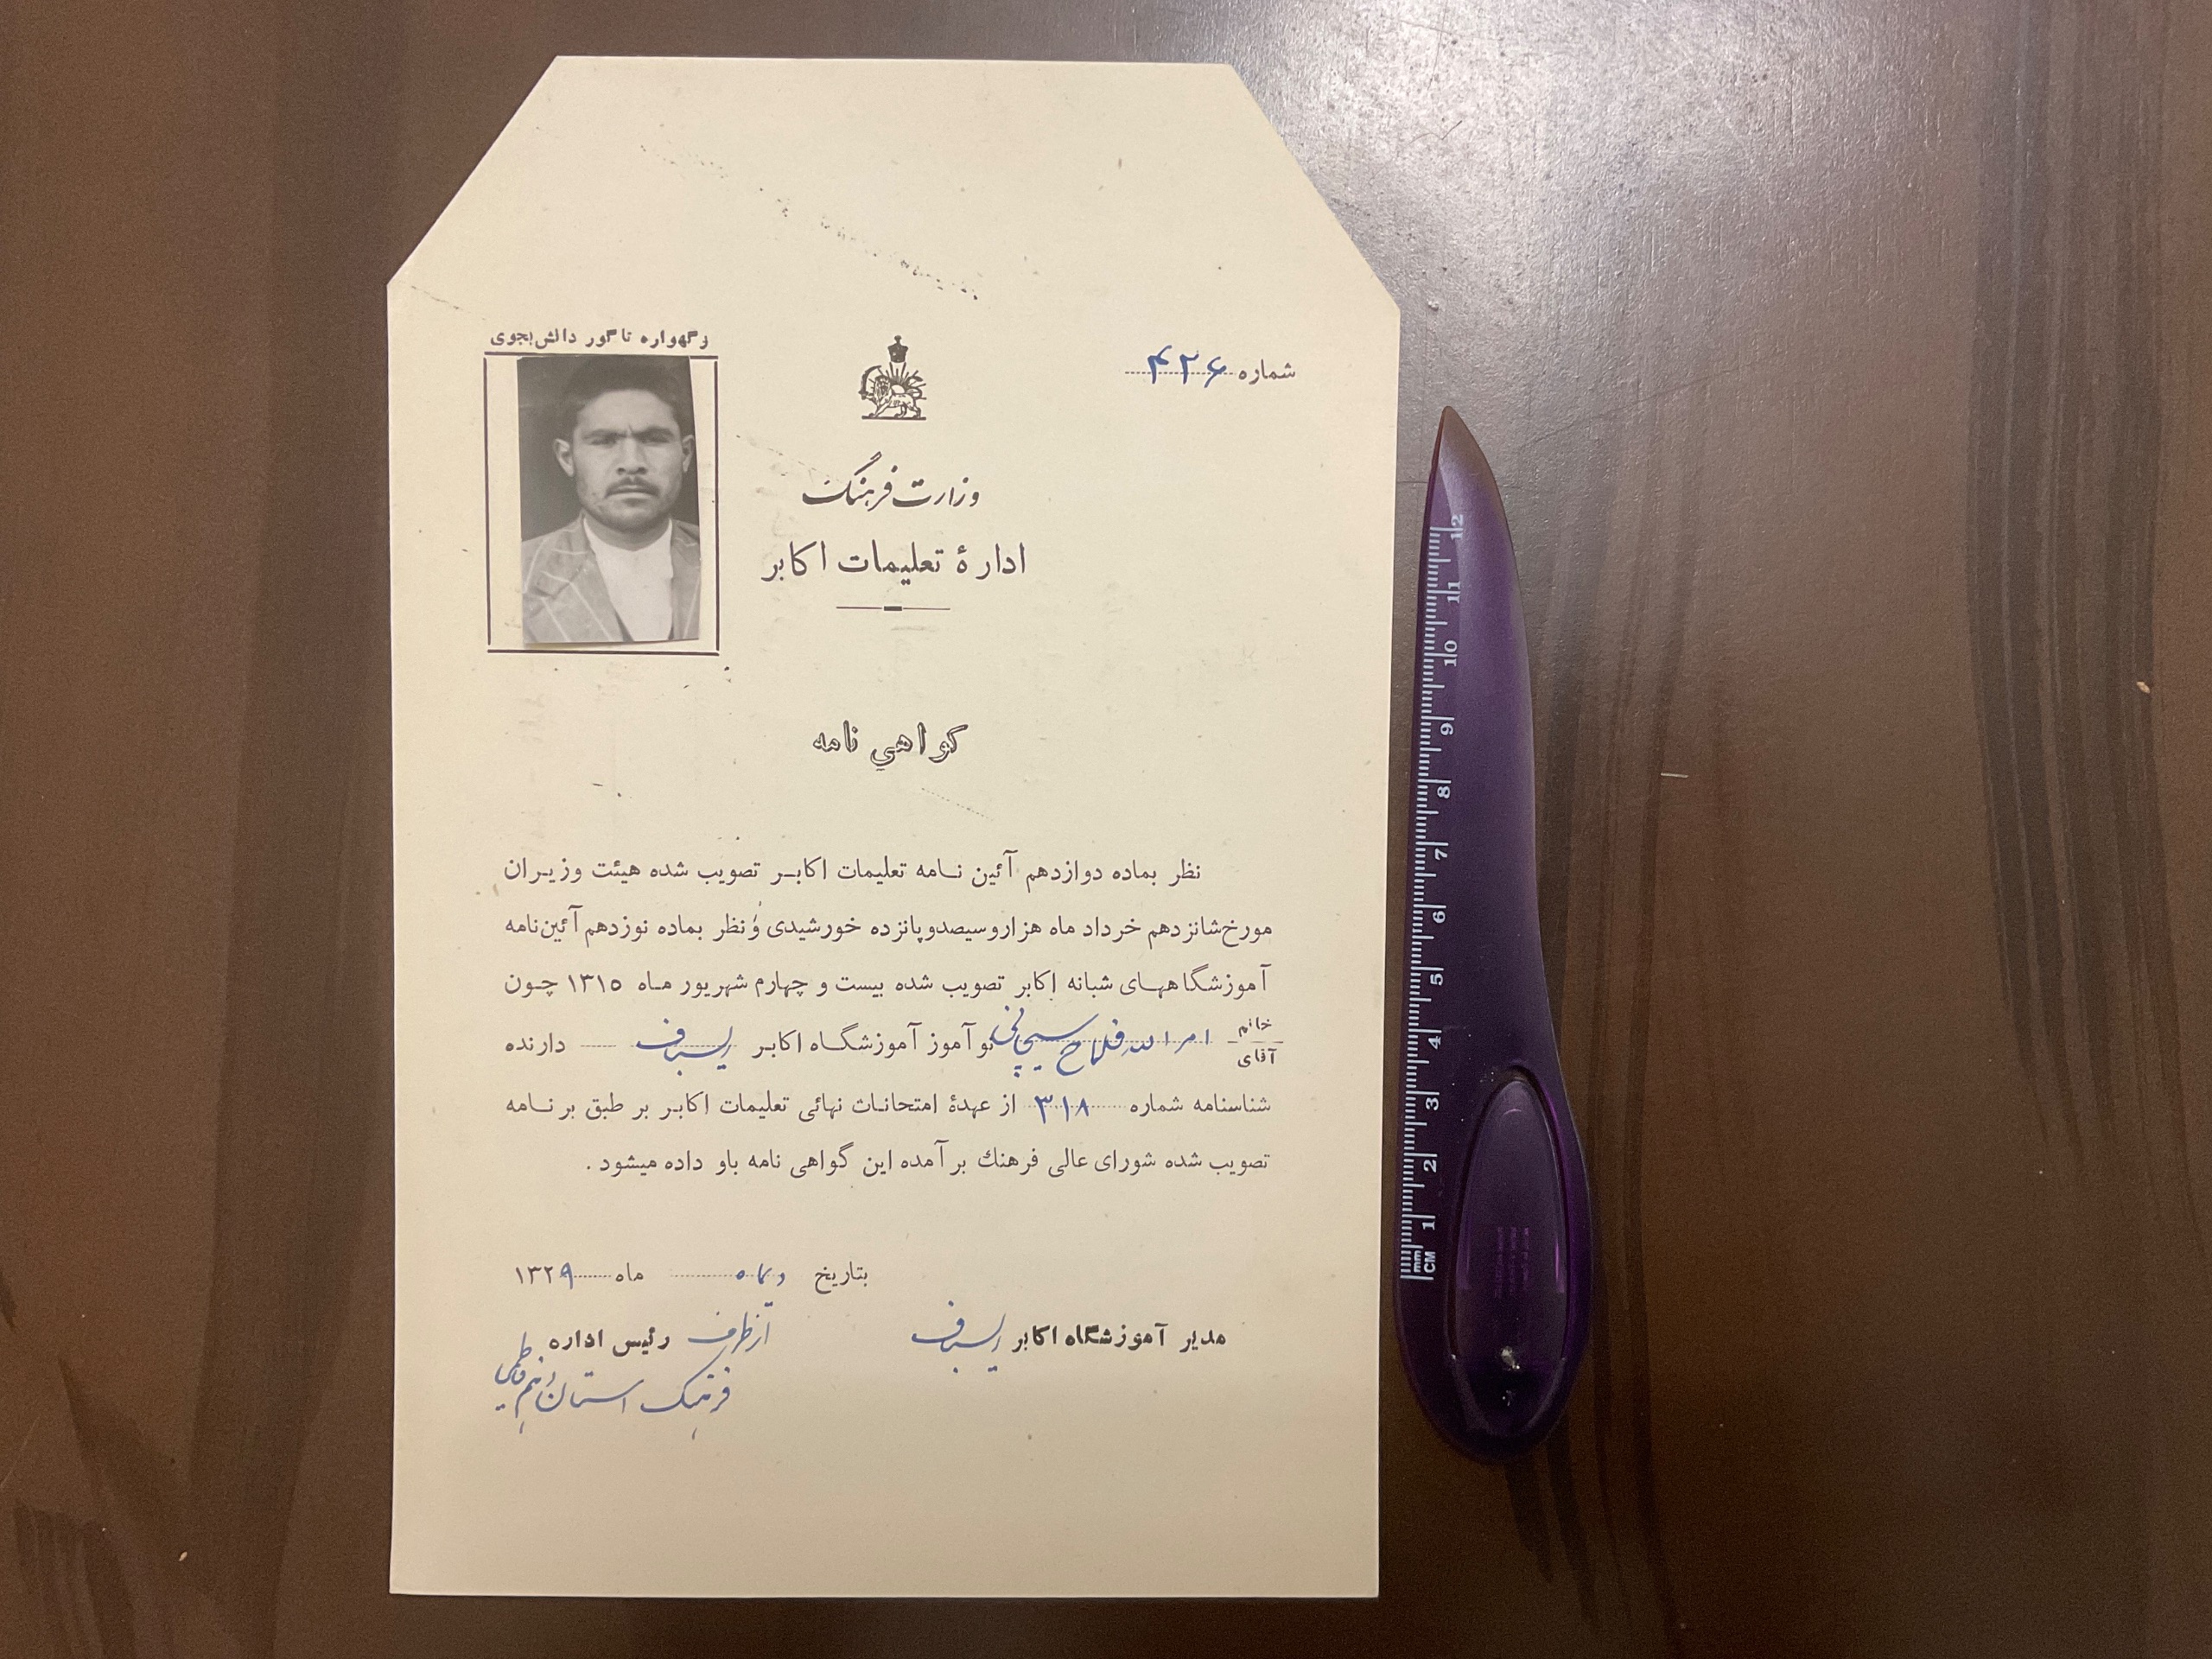 شماره ۴۲۶
زگهواره تا گور دانش بجوی
وزارت فرهنگ
ادارهٔ تعلیمات اکابر
گواهی نامه
نظر بماده دوازدهم آئین نامه تعلیمات اکابر تصویب شده هیئت وزیران
مورخ شانزدهم خرداد ماه هزار و سیصد و پانزده خورشیدی و نظر بماده نوزدهم آئین نامه
آموزشگاههای شبانه اکابر تصویب شده بیست و چهارم شهریور ماه ۱۳۱۵ چون
خانم
آقای امراله فلاح نوآموز آموزشگاه اکابر دارنده
شناسنامه شماره ۳۱۸ از عهدهٔ امتحانات نهائی تعلیمات اکابر بر طبق برنامه
تصویب شده شورای عالی فرهنك برآمده این گواهی نامه باو داده میشود .
بتاریخ دیماه ماه ۱۳۲۹
مدیر آموزشگاه اکابر
از طرف رئیس اداره
فرهنگ استان نهم
mm
CM
1
2
3
4
5
6
7
8
9
10
11
12